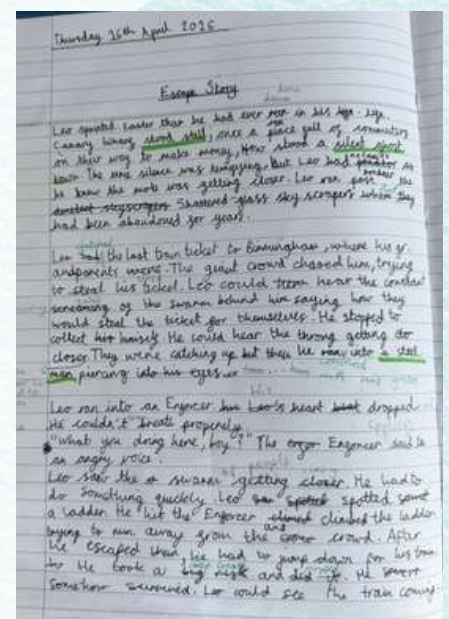 Thursday 16th April 2026
Escape Story
Leo sprinted faster than he had ever ran in his life.
Canary Wharf stood still, once a place full of commuters
on their way to make money, Now stood a silent ghost
town. The silence was terrifying. But Leo had
he knew the mob was getting closer. Leo ran past the
Shattered glass sky scrapers where they
had been abandoned for years.
Leo had the last train ticket to Birmingham, where his gr
andparents were. The giant crowd chased him, trying
to steal his ticket. Leo could hear the constant
screaming of the swarm behind him saying how they
would steal the ticket for themselves. He stopped to
collect himself. He could hear the throng getting
closer They were catching up but then he ran into a steel
man piercing into his eyes
Leo ran into an Enforcer his heart dropped
He couldn't breate properely
"What you doing here, boy?" The Enforcer said in
an angry voice.
Leo saw the swarm of people getting closer. He had to
do something quickly Leo spotted
a ladder. He hit the Enforcer climbed the ladder
trying to run away from the crowd. After
he escaped them he had to jump down for his train
He took a big risk and did it. He
somehow survived. Leo could see the train coming